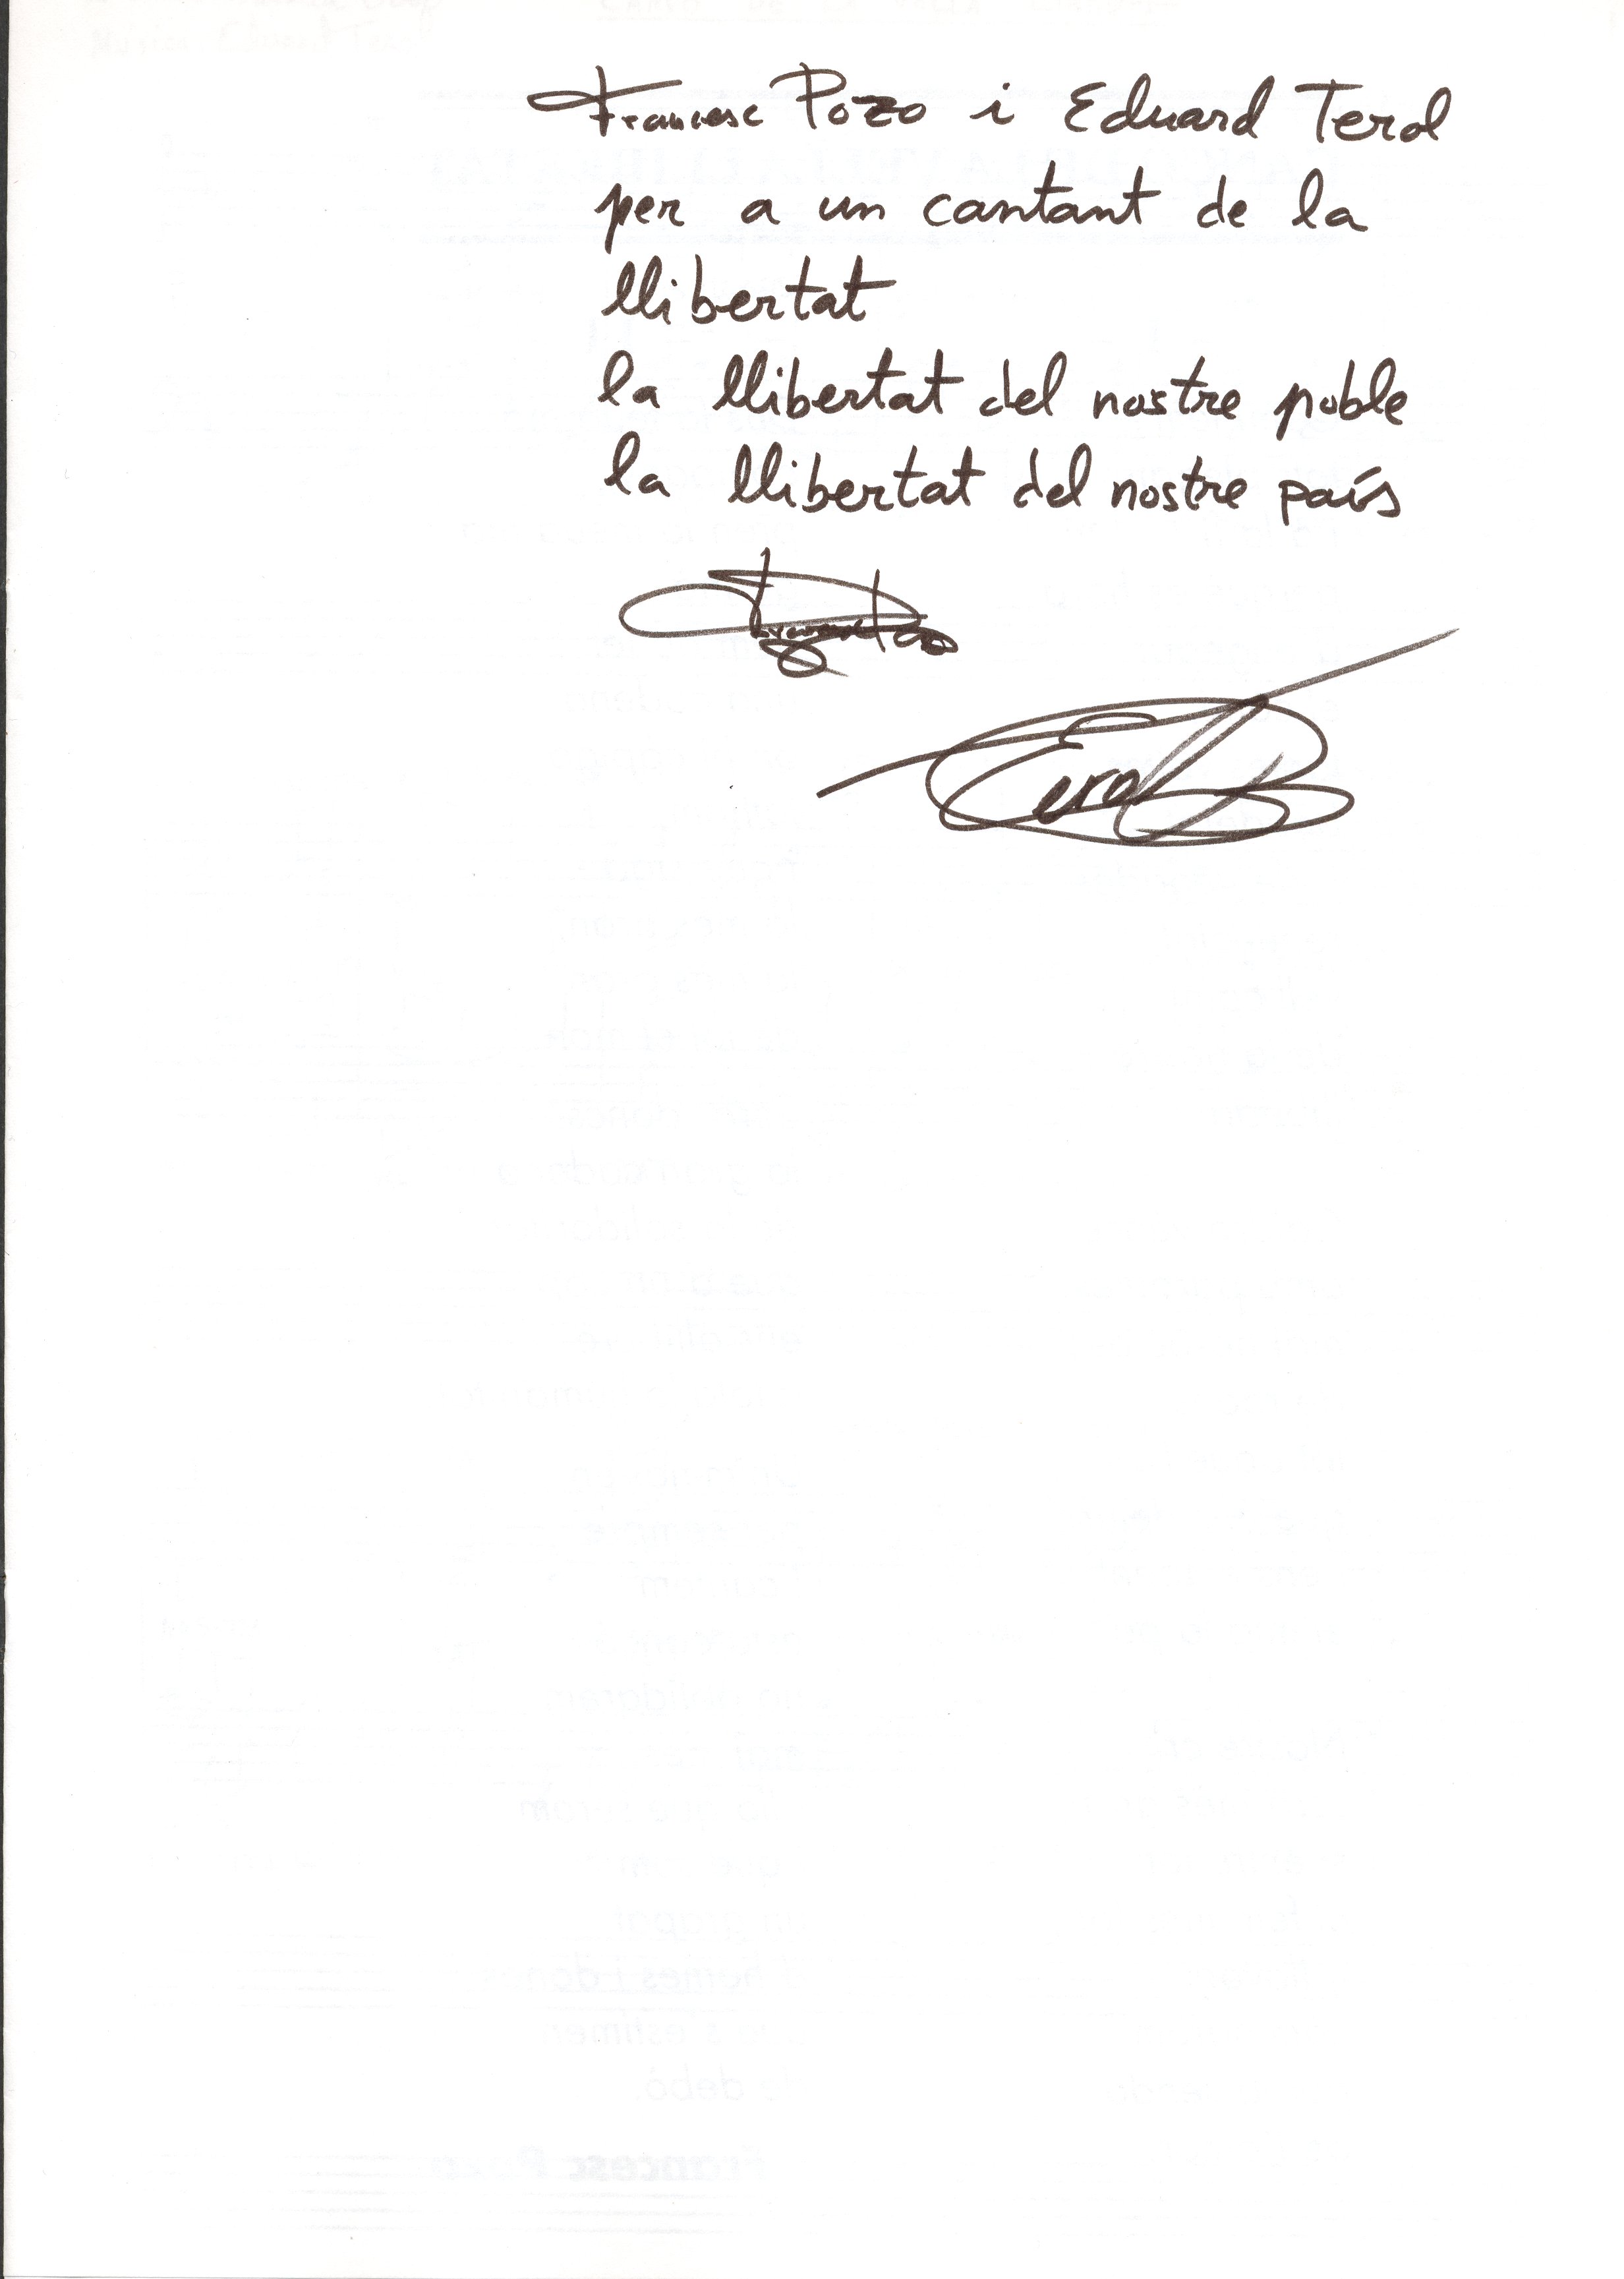 Francesc Pozo i Eduard Terol
per a un cantant de la
llibertat
la llibertat del nostre poble
la llibertat del nostre país
Terol